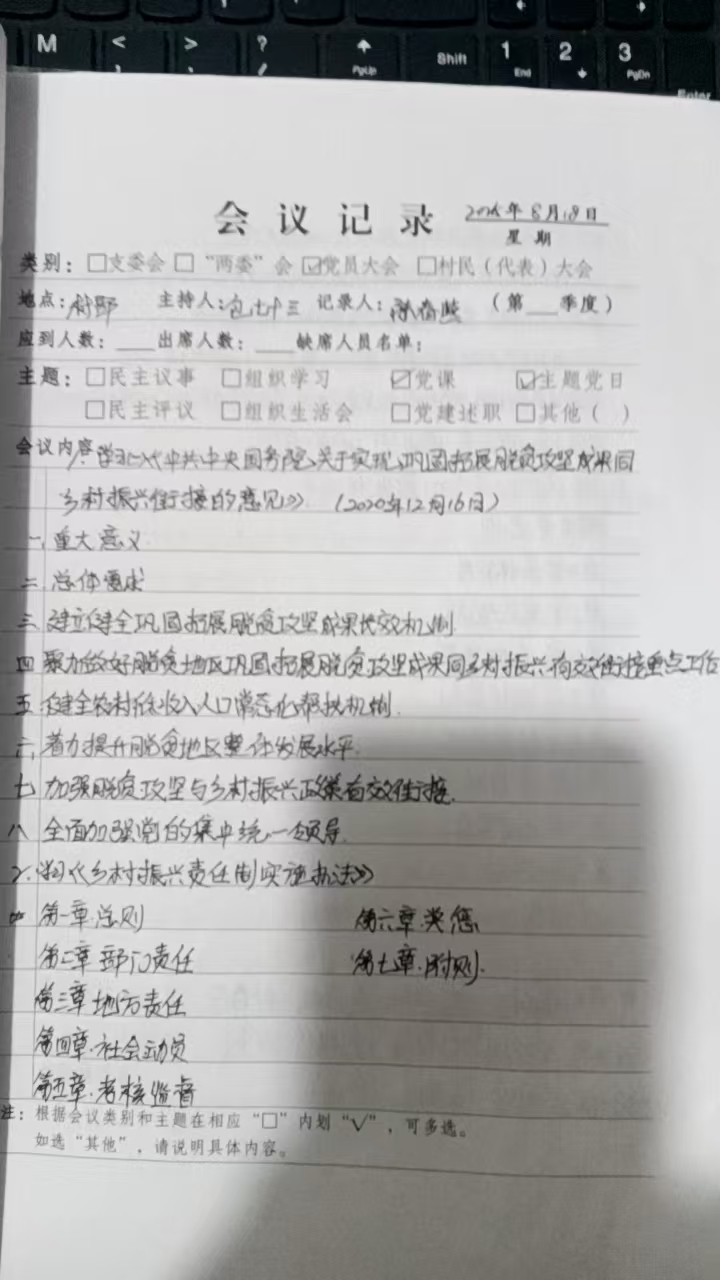 M < > ? PgUp Shift 1 End 2 3 PgDn
Enter
会议记录 年8月18日
星期
类别：□支委会 □“两委”会 ☑党员大会 □村民（代表）大会
地点：村部 主持人：包七十三 记录人： （第___季度）
应到人数：____出席人数：____缺席人员名单：
主题：□民主议事 □组织学习 ☑党课 ☑主题党日
□民主评议 □组织生活会 □党建述职 □其他（ ）
会议内容：1.学习《中共中央国务院关于实现巩固拓展脱贫攻坚成果同
乡村振兴衔接的意见》 (2020年12月16日)
一、重大意义
二 总体要求
三 建立健全巩固拓展脱贫攻坚成果长效机制
四 聚力做好脱贫地区巩固拓展脱贫攻坚成果同乡村振兴有效衔接重点工作
五 健全农村低收入人口常态化帮扶机制.
六 着力提升脱贫地区整体发展水平.
七 加强脱贫攻坚与乡村振兴政策有效衔接.
八 全面加强党的集中统一领导.
2.《 乡村振兴责任制实施办法》
第一章.总则 第六章.奖惩
第二章 部门责任 第七章.附则.
第三章 地方责任
第四章.社会动员
第五章.考核监督
注：根据会议类别和主题在相应“□”内划“√”，可多选。
如选“其他”，请说明具体内容。